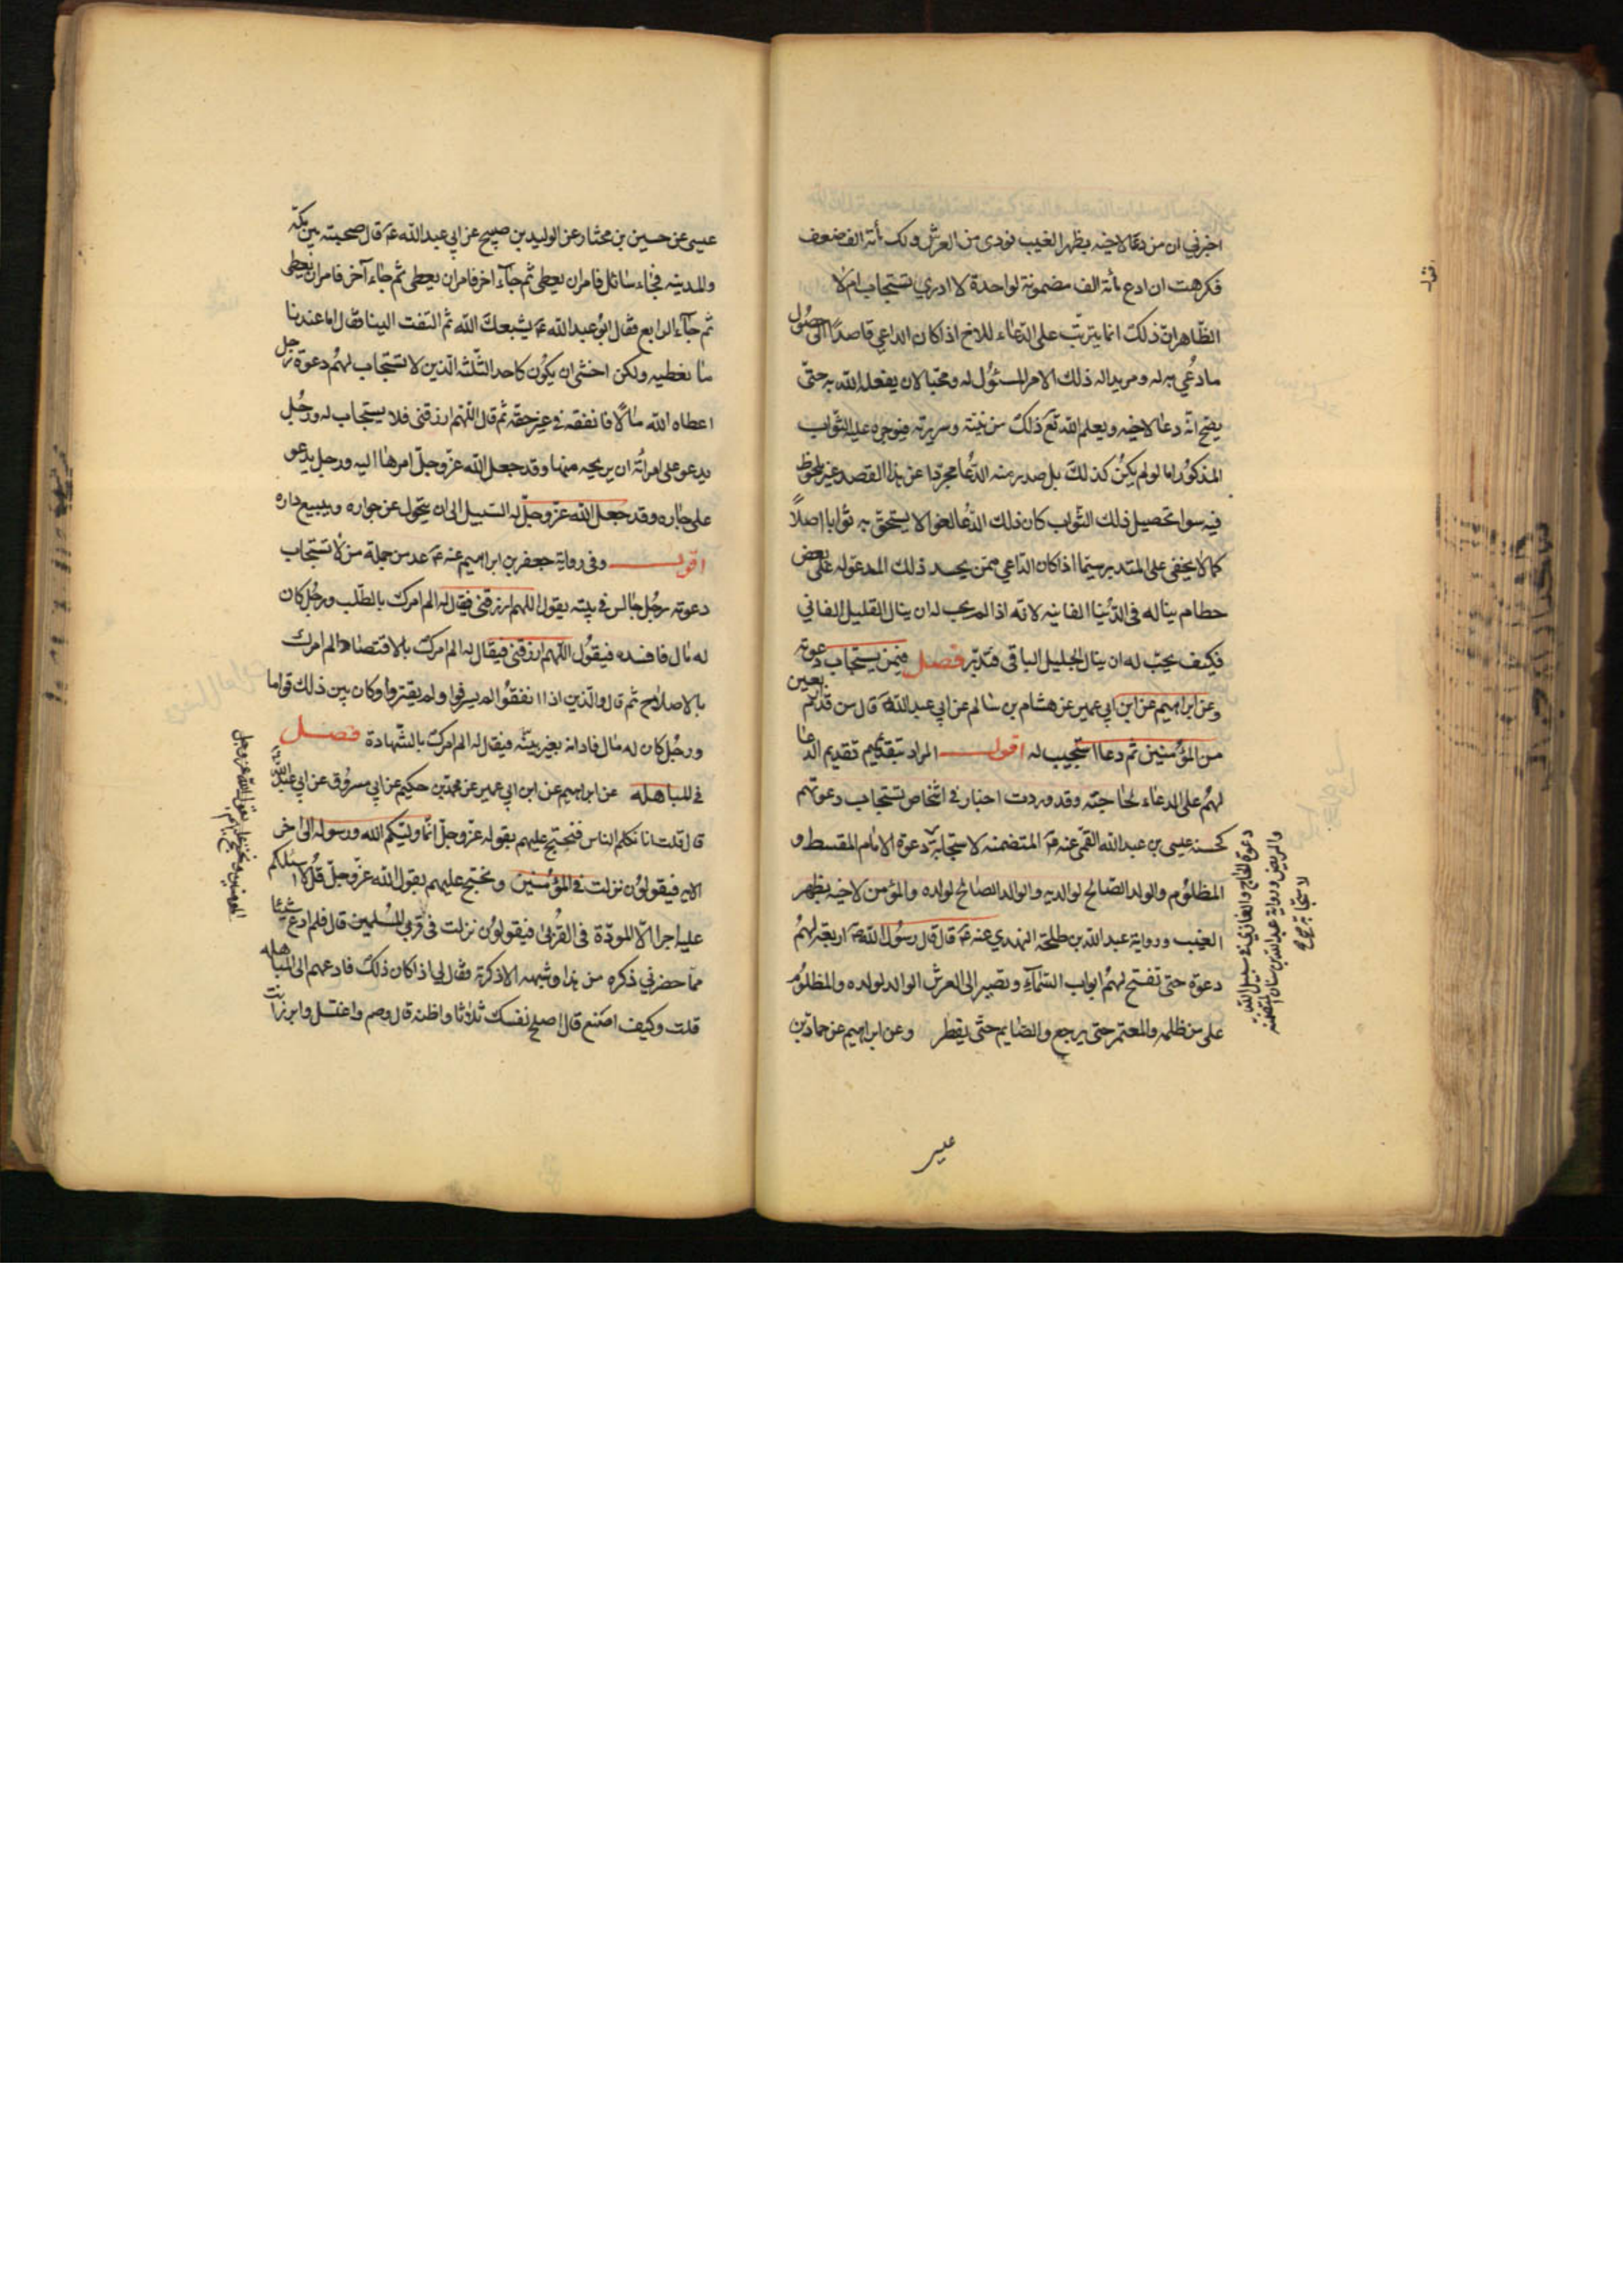 اخبرني ان من دعا لاخيه بظهر الغيب نودى من العرش ولك مأته الف ضعف
فكرهت ان ادع مأته الف مضمونة لواحدة لا ادري تستجاب ام لا
الظاهر ان ذلك انما يترتب على الدعاء للاخ اذا كان الداعي قاصدا الى حصول
ما دعي به له ومريدا له ذلك الامر المسئول له ومحبا لان يفعل الله به حتى
يصح انه دعا لاخيه ويعلم الله تع ذلك من نيته وسريرته فيوجره عليه الثواب
المذكور اما لو لم يكن كذلك بل صدر منه الدعا مجردا عن هذا القصد وغير ملحوظ
فيه سوا تحصيل ذلك الثواب كان ذلك الدعا لغوا لا يستحق به ثوابا اصلا
كما لا يخفى على المتدبر سيما اذا كان الداعي ممن يحسد ذلك المدعو له على بعض
حطام يناله فى الدنيا الفانيه لانه اذا لم يحب له ان ينال القليل الفاني
فكيف يحب له ان ينال الجليل الباقى فتدبر فصل فيمن يستجاب دعوته
وعن ابراهيم عن ابن ابي عمير عن هشام بن سالم عن ابي عبد الله ع قال من قدم اربعين
من المؤمنين ثم دعا استجيب له اقول المراد بتقديمهم تقديم الدعا
لهم على الدعاء لحاجته وقد وردت اخبار فى اشخاص تستجاب دعوتهم
كحسنه عيسى بن عبد الله القمى عنه ع المتضمنه لاستجابة دعوة الامام المقسط و
المظلوم والولد الصالح لوالديه والوالد الصالح لولده والمؤمن لاخيه بظهر
الغيب ورواية عبد الله بن طلحة النهدي عنه ع قال قال رسول الله ص اربعة لهم
دعوة حتى تفتح لهم ابواب السماء وتصير الى العرش الوالد لولده والمظلوم
على من ظلمه والمعتمر حتى يرجع والصايم حتى يفطر وعن ابراهيم عن حماد بن
دعوة الحاج والغازي فى سبيل الله
والمريض ورواية عبد الله بن سنان المتضمنه
لاستجابة
عيسى
عيسى عن حسين بن مختار عن الوليد بن صبيح عن ابي عبد الله ع قال صحبته بين مكة
والمدينه فجاء سائل فامر ان يعطى ثم جاء اخر فامر ان يعطى ثم جاء آخر فامر ان يعطى
ثم جاء الرابع فقال ابو عبد الله ع يشبعك الله ثم التفت الينا فقال اما عندنا
ما نعطيه ولكن اخشى ان يكون كاحد الثلثه الذين لا تستجاب لهم دعوة رجل
اعطاه الله مالا فانفقه فى غير حقه ثم قال اللهم ارزقنى فلا يستجاب له ورجل
يدعو على امرأته ان يريحه منها وقد جعل الله عز وجل امرها اليه ورجل يدعو
على جاره وقد جعل الله عز وجل له السبيل الى ان يتحول عن جواره ويبيع داره
اقول وفى رواية جعفر بن ابراهيم عنه ع عد من جملة من لا تستجاب
دعوته رجل جالس فى بيته يقول اللهم ارزقنى فيقال له الم امرك بالطلب ورجل كان
له مال فافسده فيقول اللهم ارزقنى فيقال له الم امرك بالاقتصاد الم امرك
بالاصلاح ثم قال والذين اذا انفقوا لم يسرفوا ولم يقتروا وكان بين ذلك قواما
ورجل كان له مال فادانه بغير بينه فيقال له الم امرك بالشهادة فصل
فى المباهله عن ابراهيم عن ابن ابي عمير عن محمد بن حكيم عن ابي مسروق عن ابي عبد الله ع
قال قلت انا نكلم الناس فنحتج عليهم بقوله عز وجل انما وليكم الله ورسوله الى اخر
الايه فيقولون نزلت فى المؤمنين ونحتج عليهم بقول الله عز وجل قل لا اسئلكم
عليه اجرا الا المودة فى القربى فيقولون نزلت فى قربى المسلمين قال فلم ادع شيئا
مما حضرني ذكره من هذا وشبهه الا ذكرته فقال لي اذا كان ذلك فادعهم الى المباهله
قلت وكيف اصنع قال اصلح نفسك ثلاثا واظنه قال وصم واغتسل وابرز انت